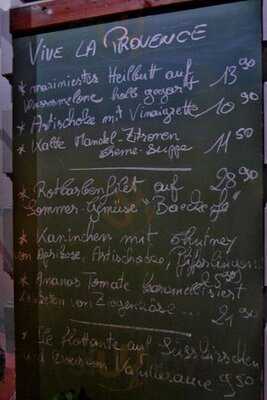 VIVE LA PROVENCE
* mariniertes Heilbutt auf 13 90
Wassermelone halb gegart
* Artischoke mit Vinaigrette 10 90
* Kalte Mandel-Zitronen 11 50
creme-suppe
* Rotbarbenfilet auf 28 90
Sommer-Gemüse "
* Kaninchen mit chutney
von Aprikose, Artischocke, Pfifferlingen
* Ananas Tomate karamelisiert
von Ziegenkäse ... 21 90
* Ile flottante auf Süsskirschen
und Vanillecreme 9 50